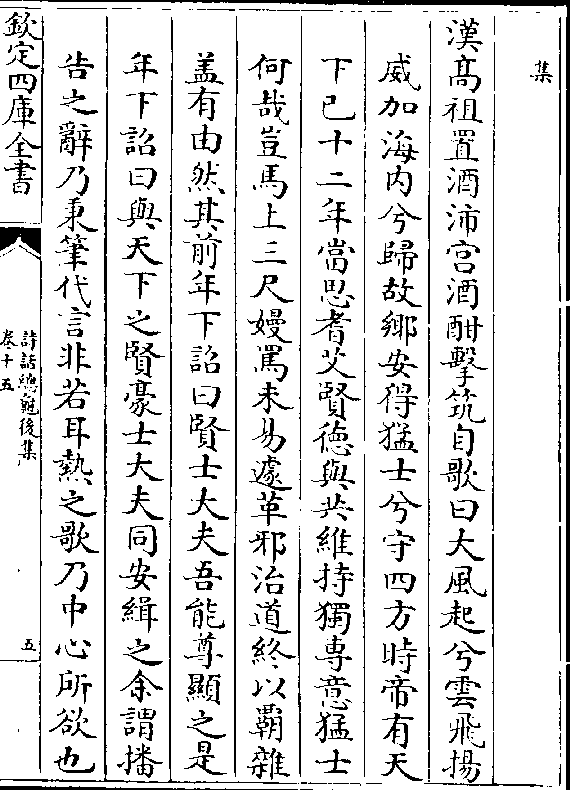 集
漢髙祖置酒沛宫酒酣擊筑自歌曰大風起兮雲飛揚
威加海内兮歸故鄉安得猛士兮守四方時帝有天
下已十二年當思耆艾賢徳與共維持獨専意猛士
何哉豈馬上三尺嫚罵未易遽革邪治道終以霸雜
盖有由然其前年下詔曰賢士大夫吾能尊顯之是
年下詔曰與天下之賢豪士大夫同安緝之余謂播
告之辭乃秉筆代言非若耳熱之歌乃中心所欲也
欽定四庫全書
詩話總龜後集
卷十五
五